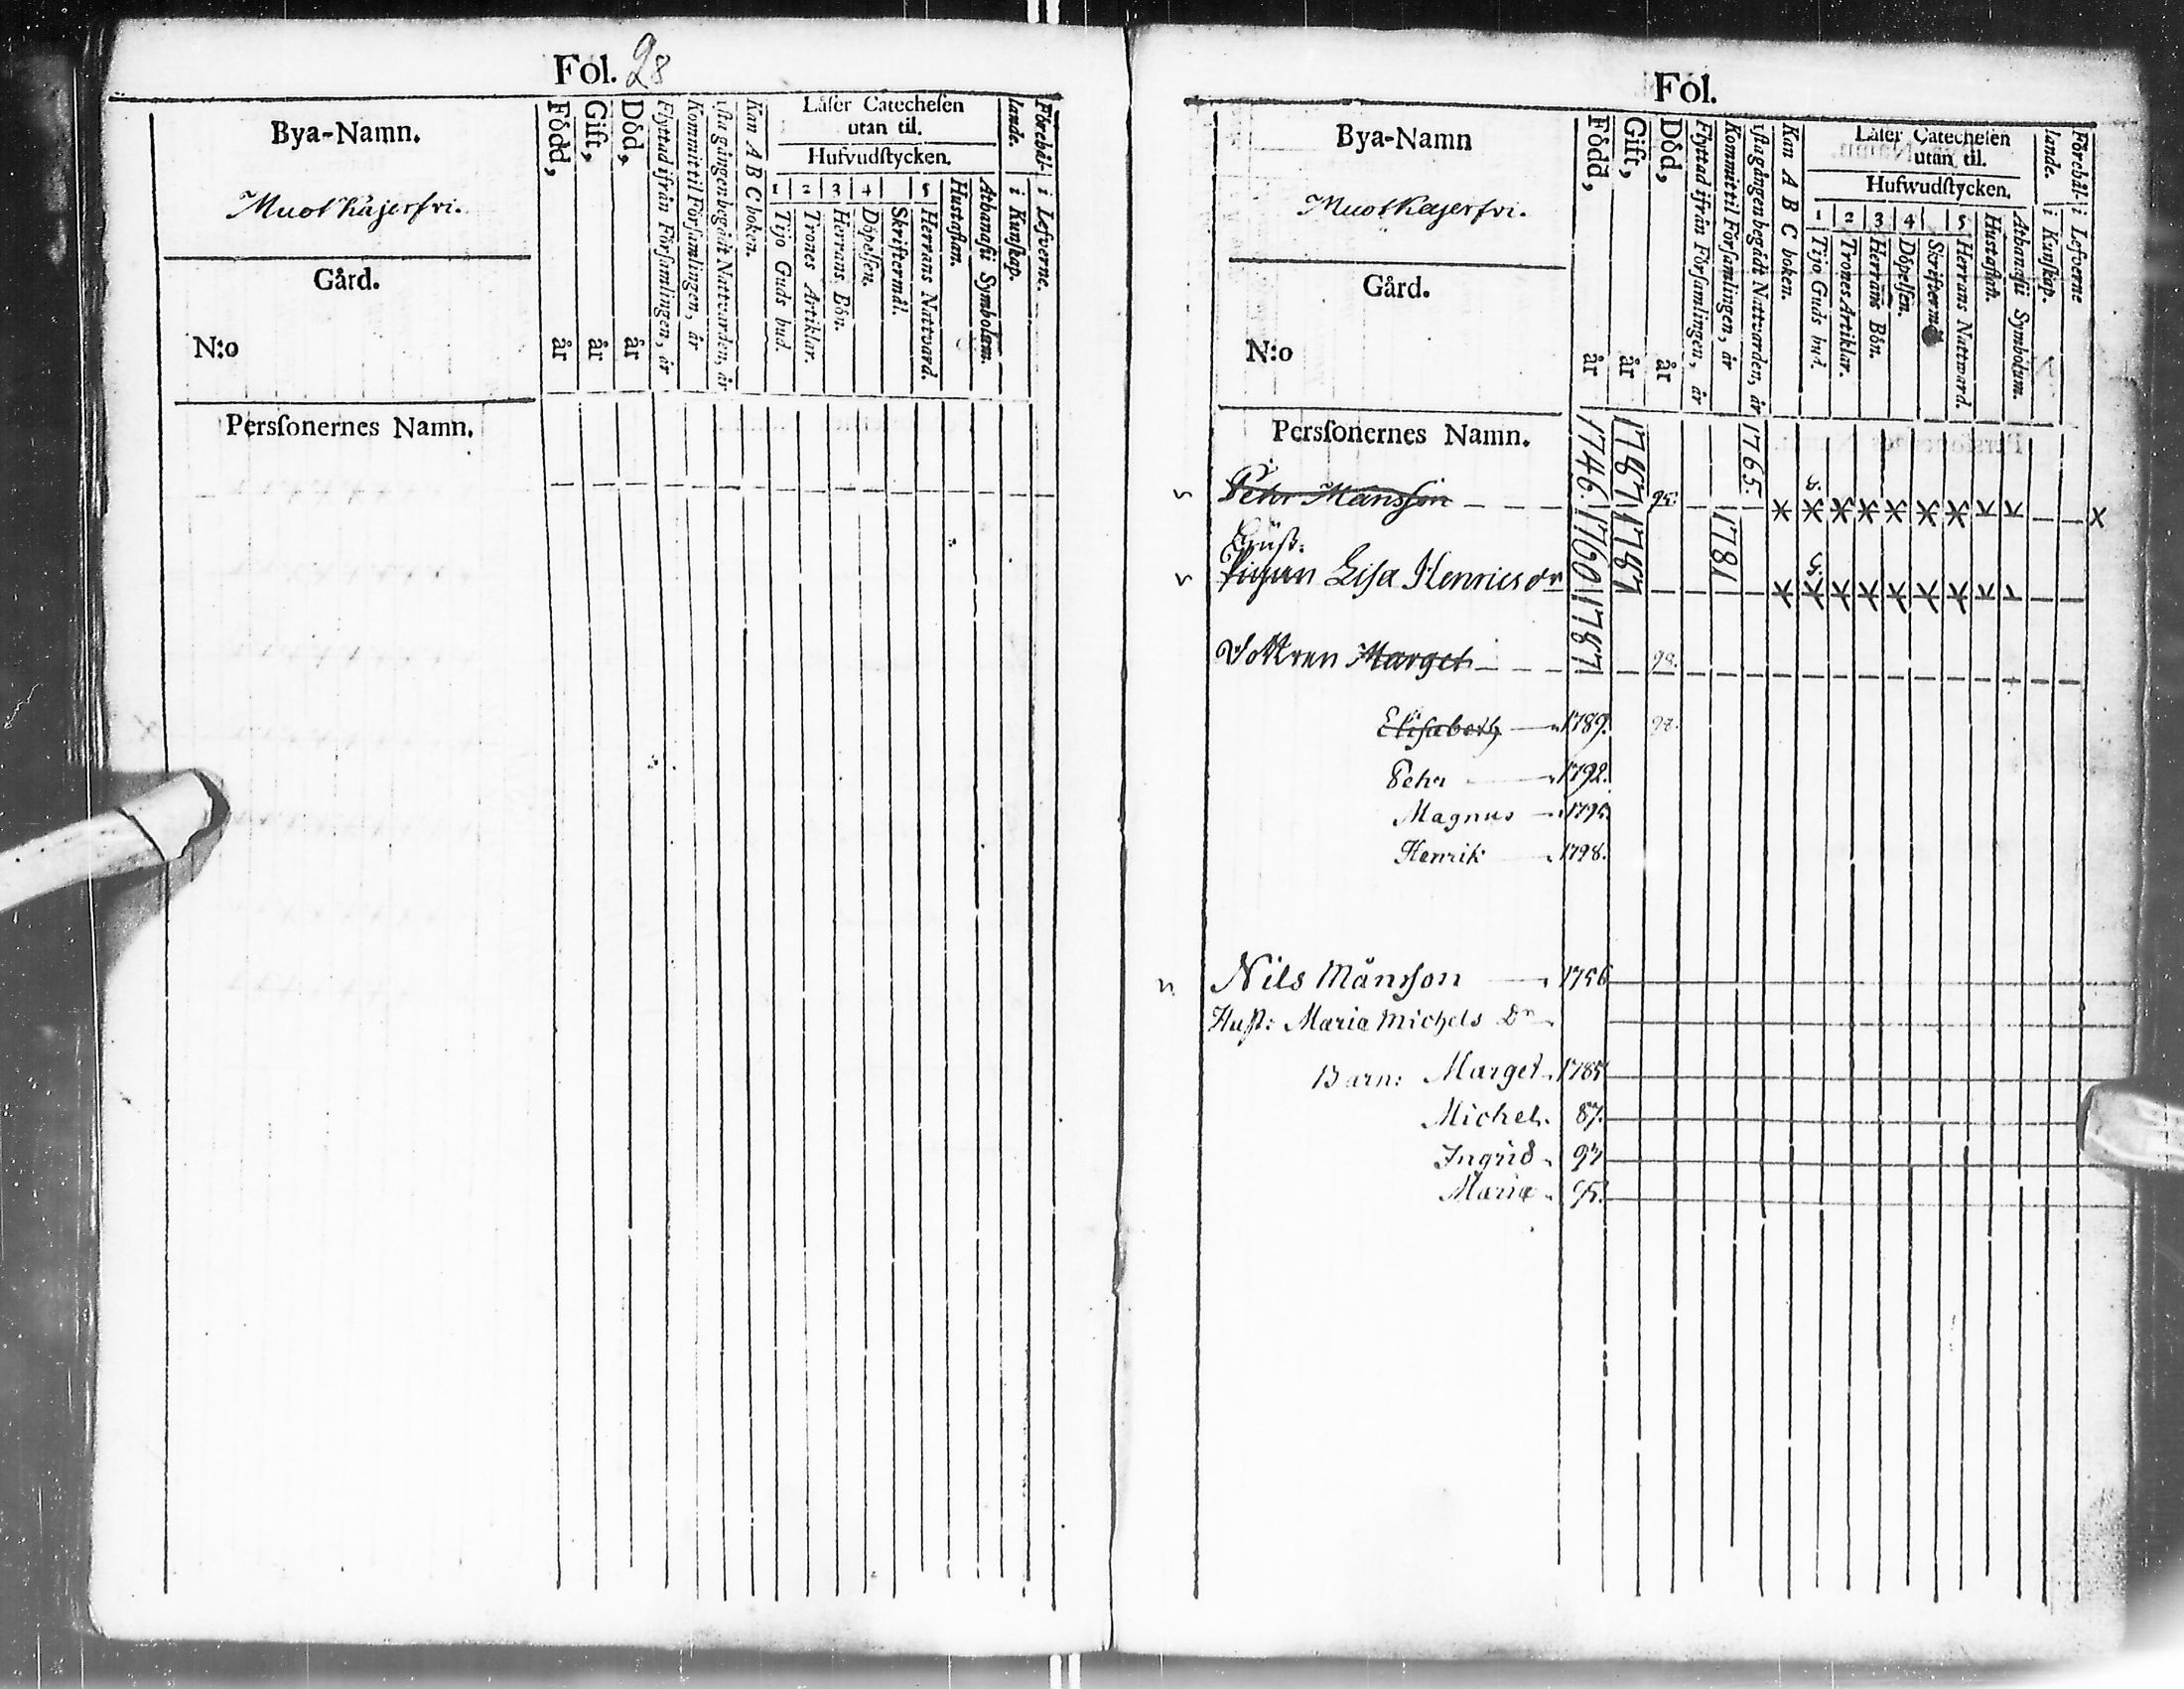 Fol. 28
Bya-Namn.
Muotkajerfvi.
Gård.
N:o
Persſonernes Namn.
Född, år
Gift, år
Död, år
Flyttad ifrån Förſamlingen, år
Kommit til Förſamlingen, år
1ſta gången begådt Nattvarden, år
Kan A B C boken.
Läſer Catecheſen
utan til.
Hufvudſtycken.
1 2 3 4 5
Tijo Guds bud.
Trones Artiklar.
Herrans Bön.
Döpelſen.
Skriftermål.
Herrans Nattvard.
Huſtaflan.
Athanaſii Symbolum.
Förehål-
lande.
i Kunſkap.
i Lefverne.
Fol.
Bya-Namn
Muotkajerfvi.
Gård.
N:o
Persſonernes Namn.
Född, år
Gift, år
Död, år
Flyttad ifrån Förſamlingen, år
Kommit til Förſamlingen, år
1ſta gången begådt Nattvarden, år
Kan A B C boken.
Läſer Catecheſen
utan til.
Hufwudſtycken.
1 2 3 4 5
Tijo Guds bud.
Trones Artiklar.
Herrans Bön.
Döpelſen.
Skrifterm
Herrans Nattward.
Huſtaflan.
Athanaſii Symbolum.
Förehål-
lande.
i Kunſkap.
i Lefverne
Pehr Månsſon 1746 1787 95. 1765.
Huſt:
Pigan Liſa Henricsdr 1760 1787 1781
Dottren Marget 1787 98.
Eliſabeth 1789.
Pehr 1792.
Magnus 1795
Henrik 1798.
Nils Månsſon 1756
Huſt: Maria Michels Dr
Barn: Marget 1785
Michel. 87.
Ingrid 93
Maria 95.